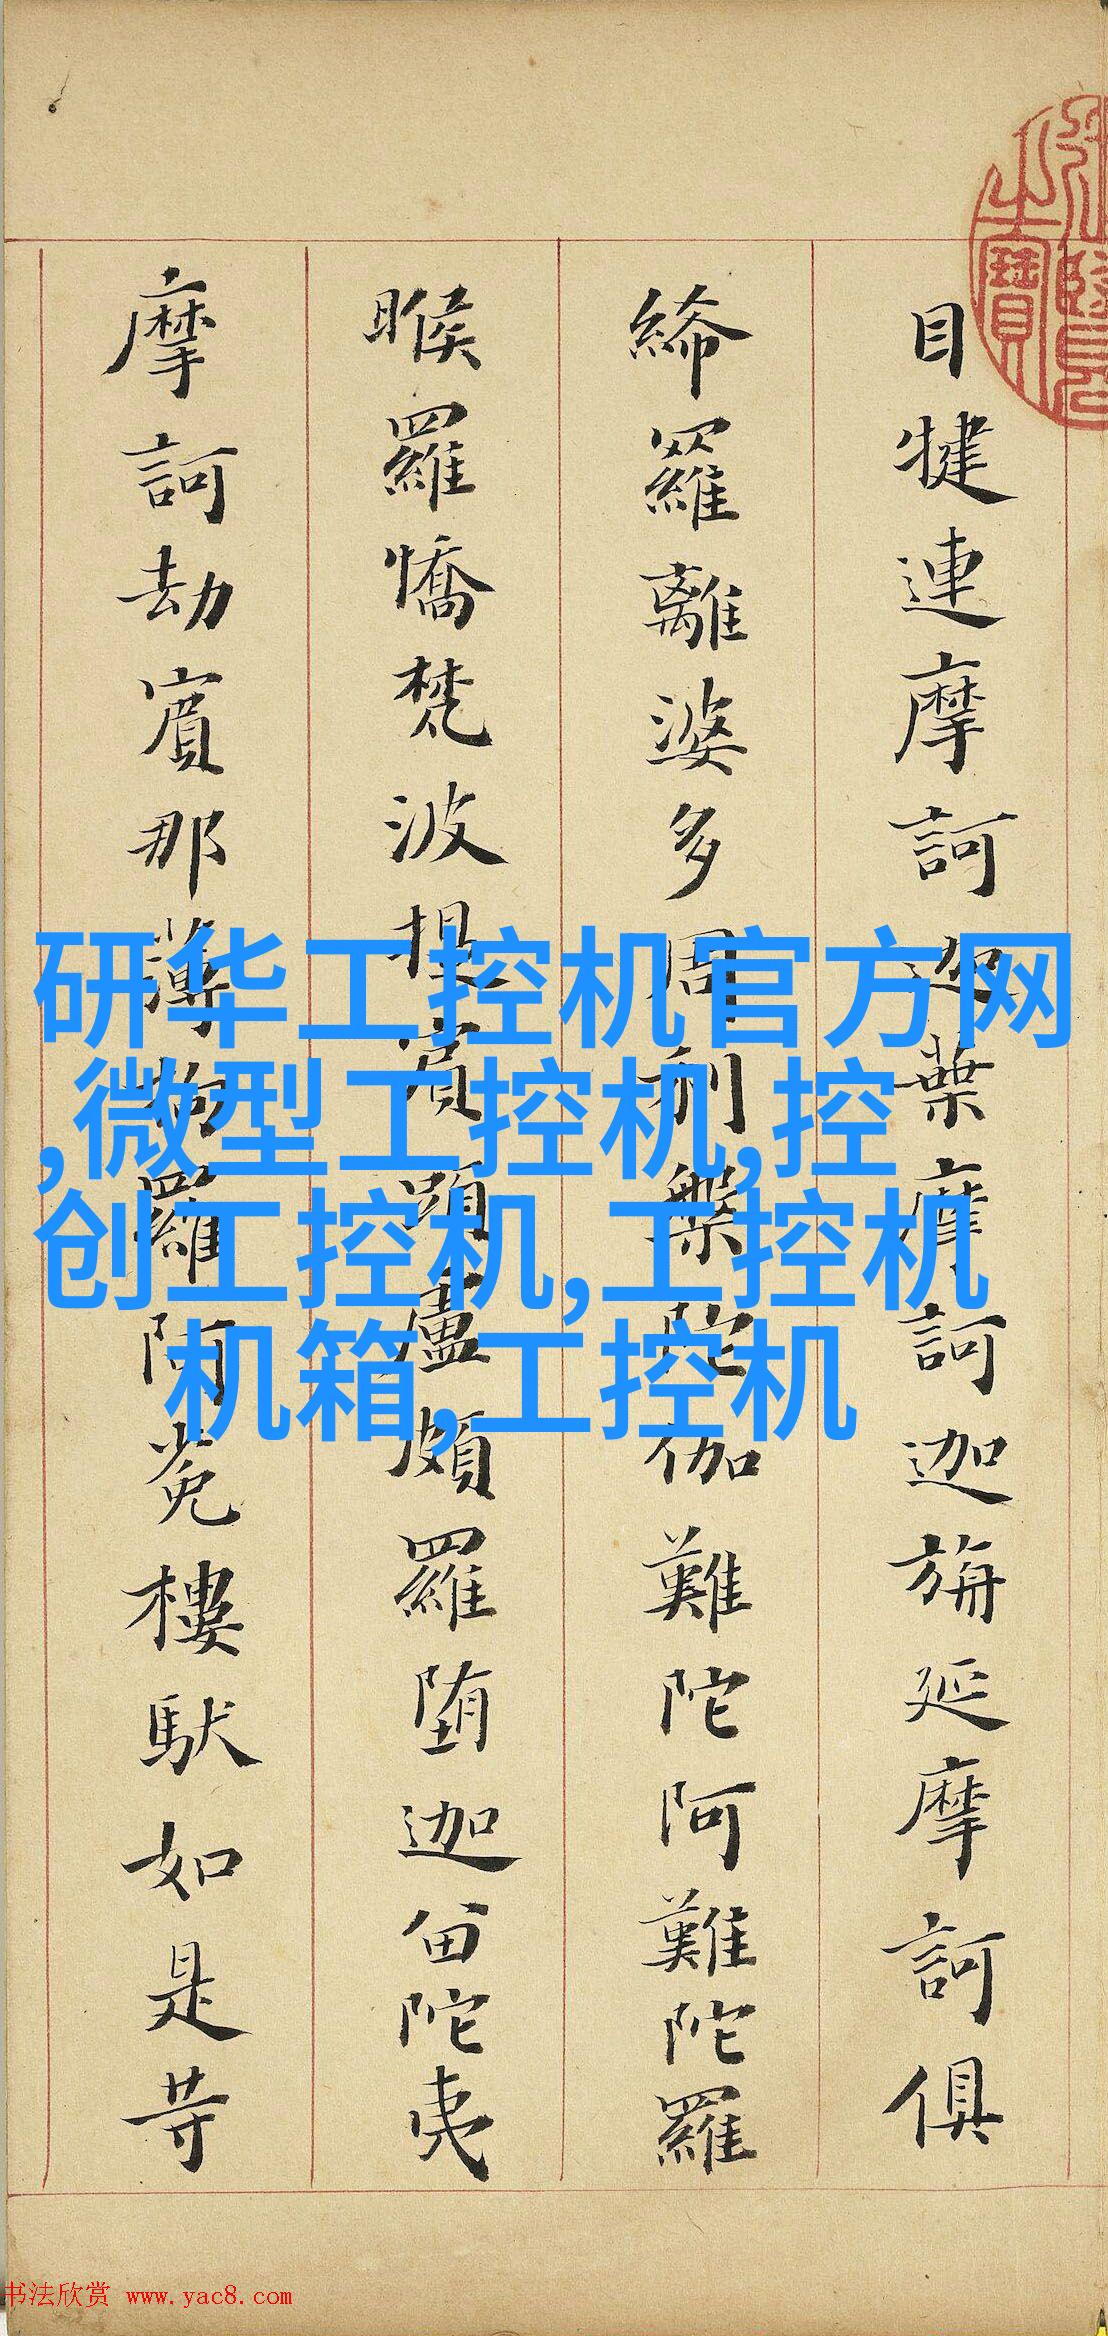 目犍連摩訶迦葉摩訶迦旃延摩訶俱
絺羅離婆多周利槃陀伽難陀阿難陀羅
睺羅憍梵波提賓頭盧頗羅堕迦留陀夷
摩訶劫賓那薄拘羅阿㝹樓馱如是等
研华工控机官方网
,微型工控机,控
创工控机,工控机
机箱,工控机
书法欣赏 www.yac8.com